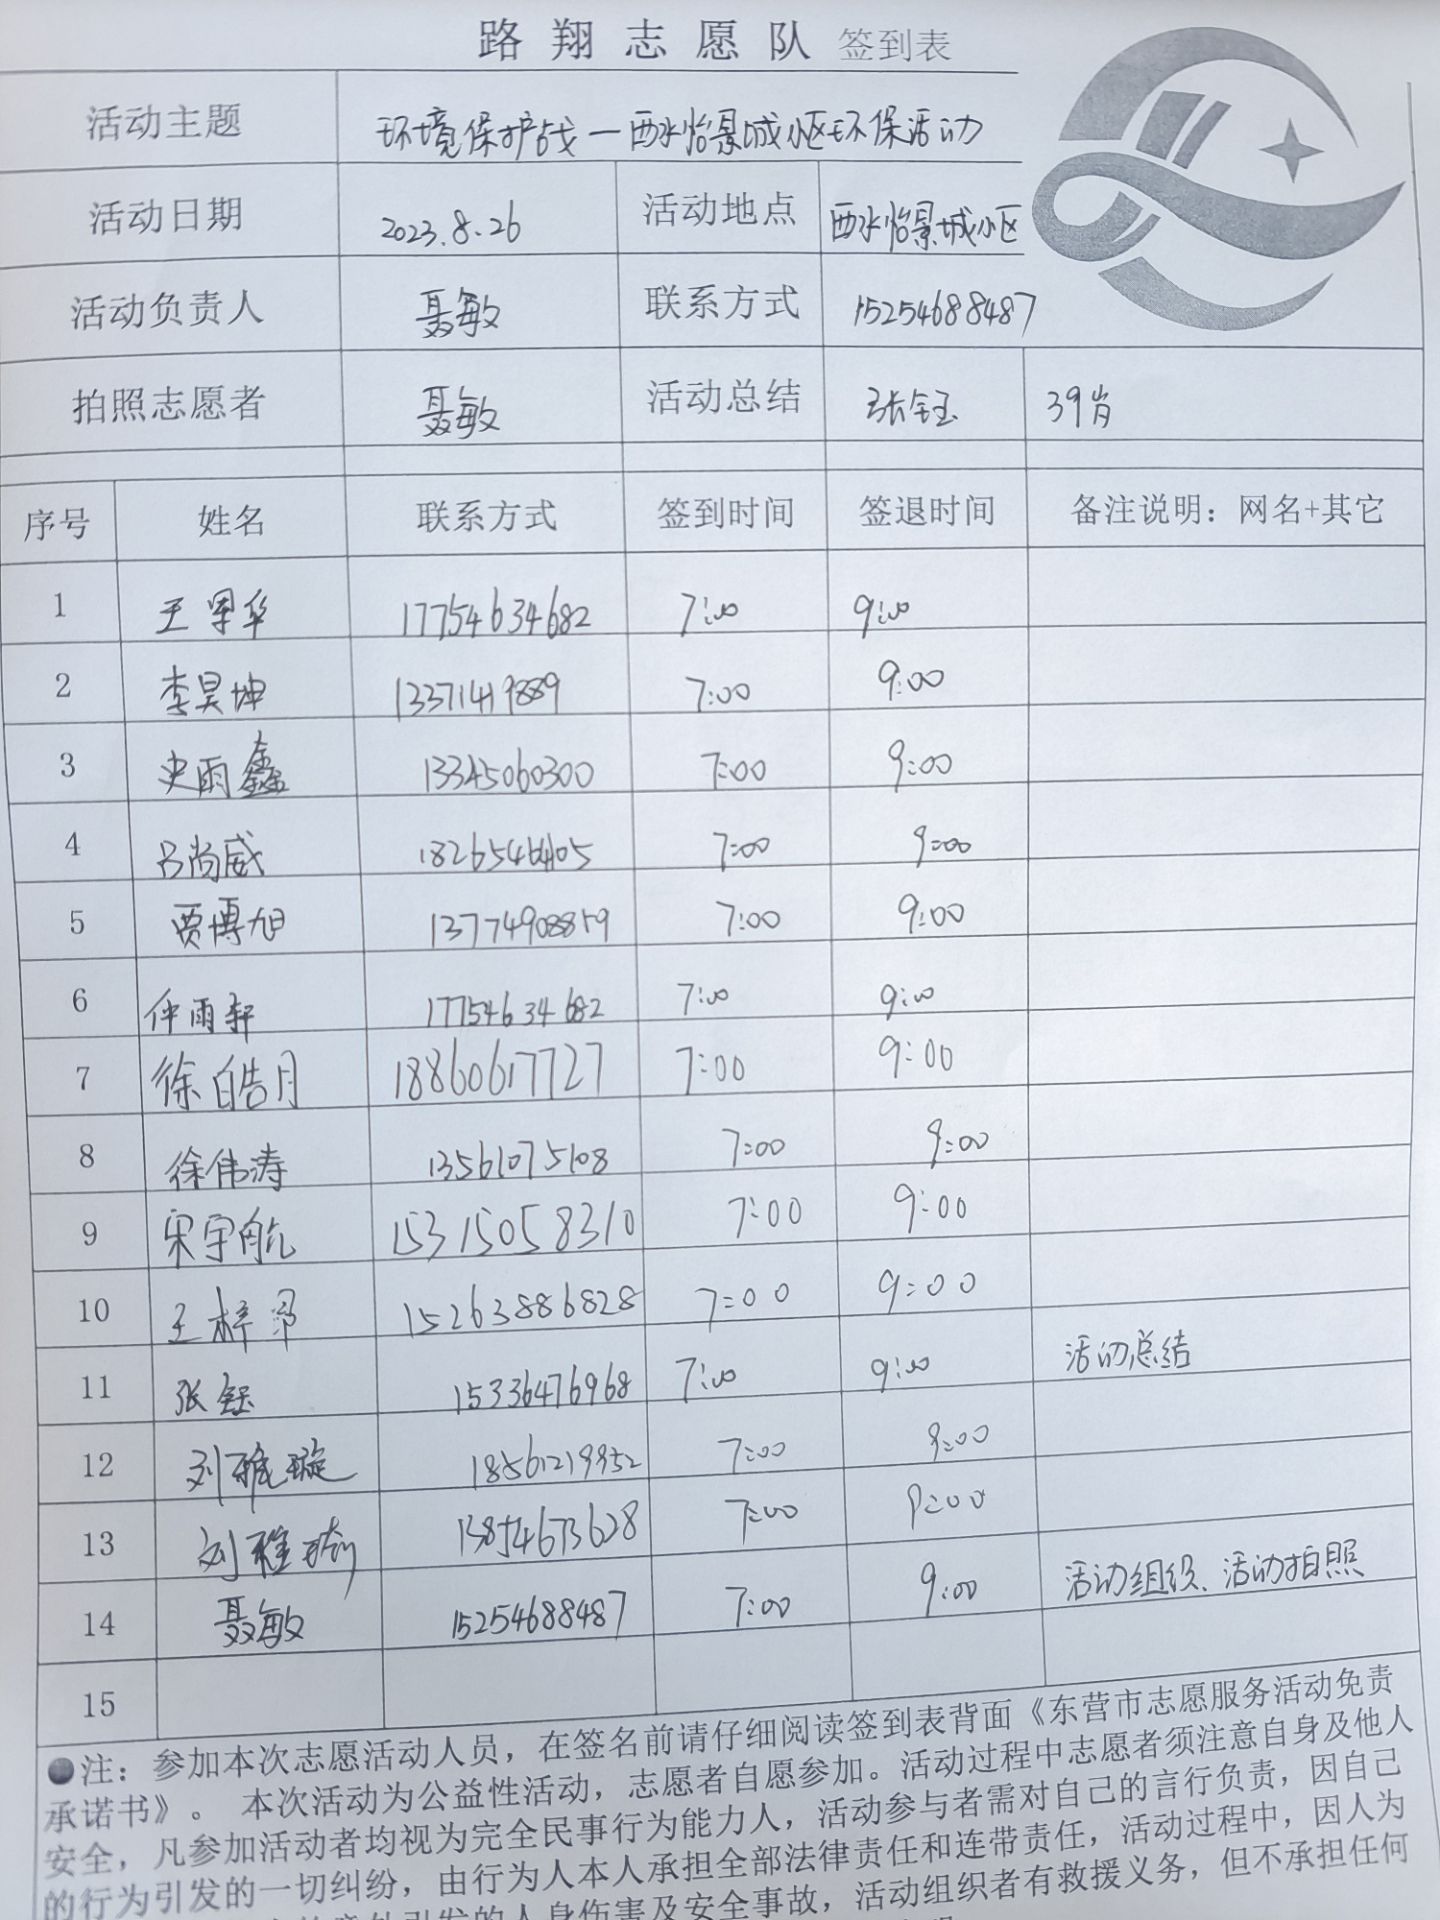 路翔志愿队 签到表
活动主题 环境保护战一西水怡景城小区环保活动
活动日期 2023.8.26 活动地点 西水怡景城小区
活动负责人 聂敏 联系方式 15254688487
拍照志愿者 聂敏 活动总结 张钰 39岁
序号 姓名 联系方式 签到时间 签退时间 备注说明：网名+其它
1 王军华 17754634682 7:00 9:00
2 李昊坤 13371419889 7:00 9:00
3 史雨鑫 13345060300 7:00 9:00
4 吕尚威 18265464105 7:00 9:00
5 贾博旭 13774908859 7:00 9:00
6 仲雨轩 17754634682 7:00 9:00
7 徐皓月 18860617727 7:00 9:00
8 徐伟涛 13561075108 7:00 9:00
9 宋宇航 15315058310 7:00 9:00
10 王梓 15263886828 7:00 9:00
11 张钰 15336476968 7:00 9:00 活动总结
12 刘雅璇 18561219952 7:00 9:00
13 刘雅 13854673628 7:00 9:00
14 聂敏 15254688487 7:00 9:00 活动组织、活动拍照
15
●注：参加本次志愿活动人员，在签名前请仔细阅读签到表背面《东营市志愿服务活动免责
承诺书》。 本次活动为公益性活动，志愿者自愿参加。活动过程中志愿者须注意自身及他人
安全，凡参加活动者均视为完全民事行为能力人，活动参与者需对自己的言行负责，因自己
的行为引发的一切纠纷，由行为人本人承担全部法律责任和连带责任，活动过程中，因人为
意外引发的人身伤害及安全事故，活动组织者有救援义务，但不承担任何